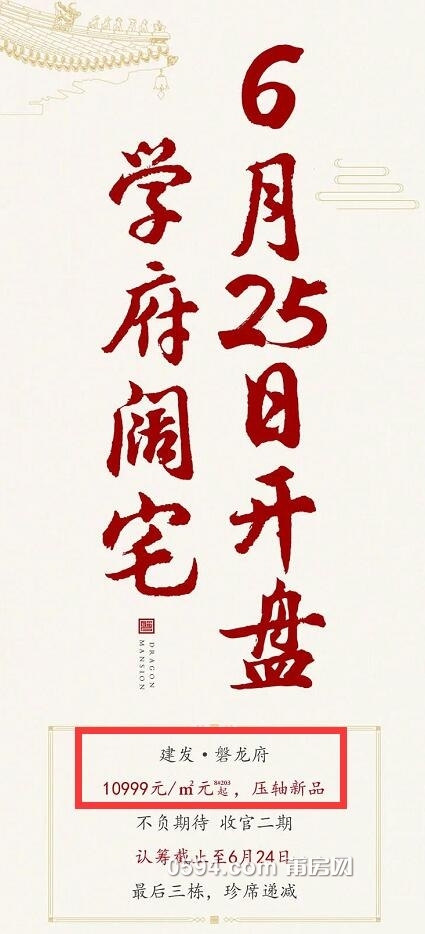 6月25日开盘
学府阔宅
DRAGON
MANSION
建发·磐龙府
10999元/㎡元8#203起，压轴新品
不负期待 收官二期
认筹截止至6月24日
0594.com 莆房网
最后三栋，珍席递减